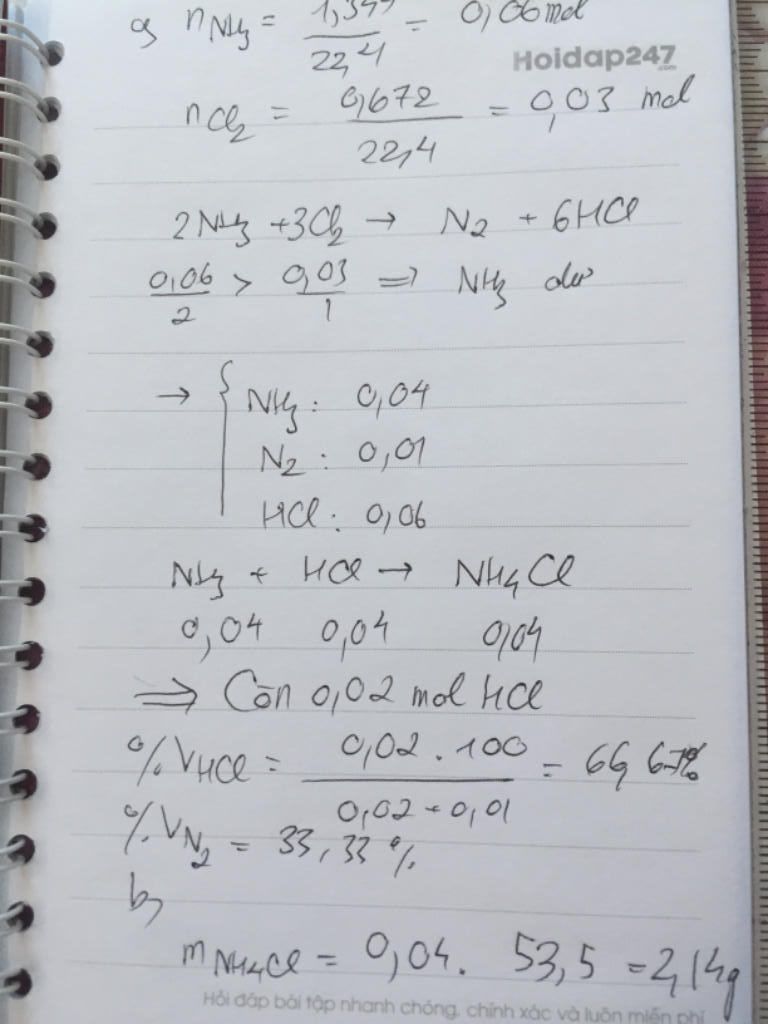 a, nNH3 = 1,344 / 22,4 = 0,06 mol
Hoidap247.com
nCl2 = 0,672 / 22,4 = 0,03 mol
2NH3 + 3Cl2 → N2 + 6HCl
0,06/2 > 0,03/1 => NH3 dư
→ { NH3 : 0,04
N2 : 0,01
HCl : 0,06
NH3 + HCl → NH4Cl
0,04 0,04 0,04
=> Còn 0,02 mol HCl
%VHCl = 0,02 . 100 / 0,02 + 0,01 = 66,67%
%VN2 = 33,33%
b,
mNH4Cl = 0,04. 53,5 = 2,14g
Hỏi đáp bài tập nhanh chóng, chính xác và luôn miễn phí